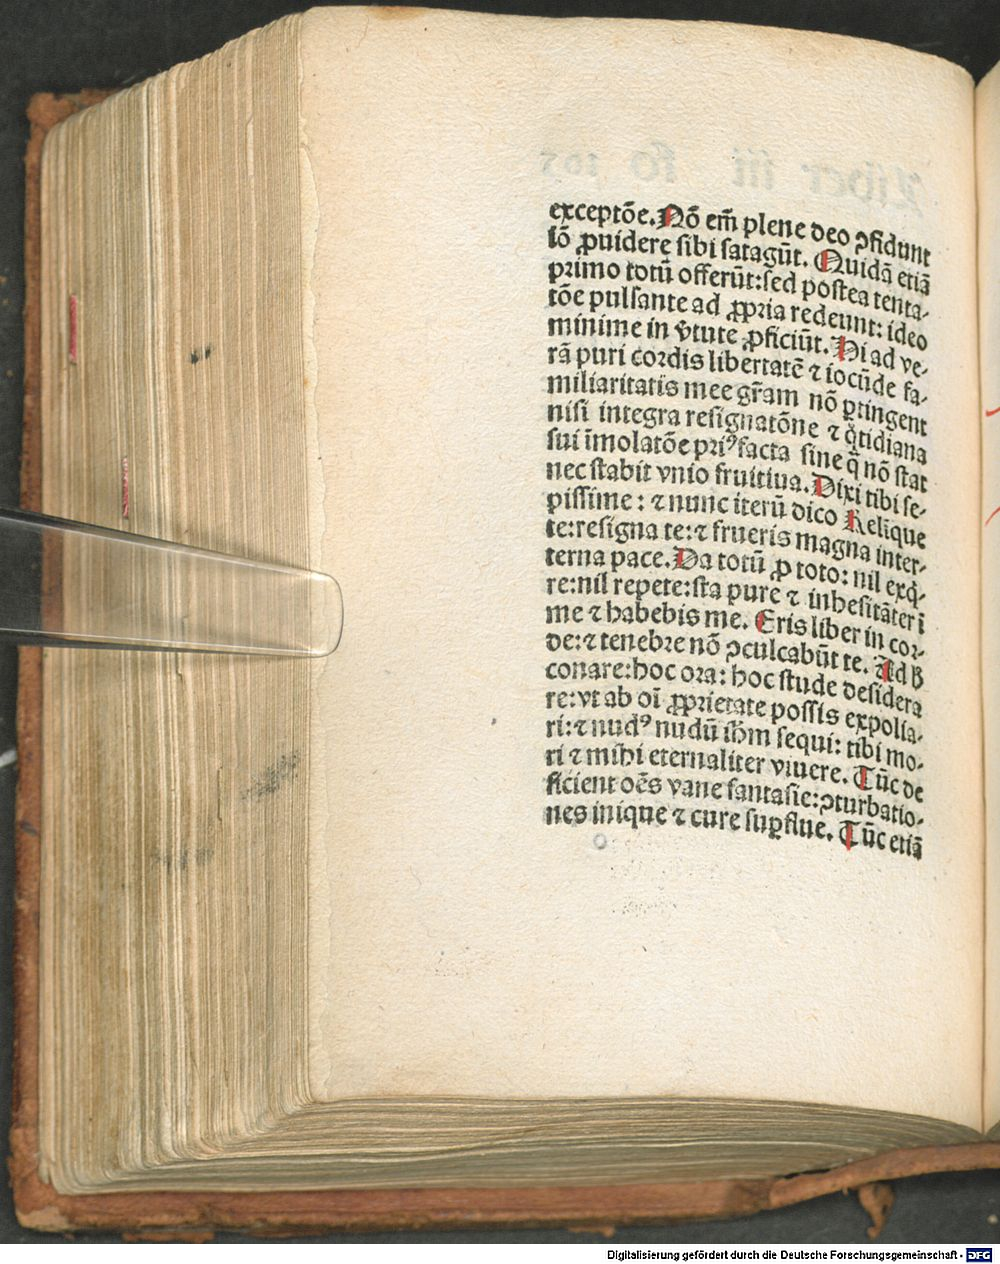 exceptōe. Nō em̄ plene deo ꝯfidunt
iō ꝓuidere sibi satagūt. Quidā etiā
primo totū offerūt: sed postea tenta-
tōe pulsante ad ꝓpria redeunt: ideo
minime in v̓tute ꝓficiūt. Hi ad ve-
rā puri cordis libertatē ⁊ iocūde fa-
miliaritatis mee gr̄am nō ꝑtingent
nisi integra resignatōne ⁊ q̇tidiana
sui īmolatōe priꝰ facta sine q̄ nō stat
nec stabit vnio fruitiua. Dixi tibi se-
pissime: ⁊ nunc iterū dico Relīque
te: resigna te: ⁊ frueris magna inter-
terna pace. Da totū ꝓ toto: nil exq̇-
re: nil repete: sta pure ⁊ inhesitāter ī
me ⁊ habebis me. Eris liber in cor-
de: ⁊ tenebre nō ꝯculcabūt te. Ad ꝟ
conare: hoc ora: hoc stude desidera
re: vt ab oī ꝓprietate possis expolia-
ri: ⁊ nudꝰ nudū ih̄m sequi: tibi mo-
ri ⁊ mihi eternaliter viuere. Tūc de
ficient oēs vane fantasie: ꝯturbatio-
nes inique ⁊ cure suꝑflue. Tūc etiā
Digitalisierung gefördert durch die Deutsche Forschungsgemeinschaft - DFG